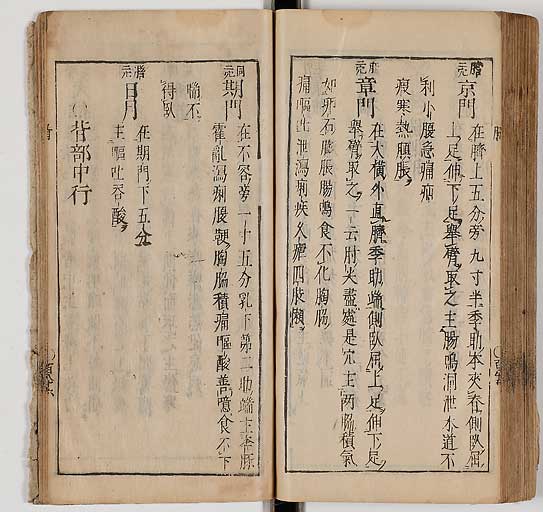 京門 在臍上五分旁九寸半季肋本夾脊側臥屈
上足伸下足舉臂取之主腸鳴洞泄水道不
利小腹急痛
寒熱䐜脹
章門 在大橫外直臍季肋端側臥屈上足伸下足
舉臂取之一云肘尖盡處是穴主兩脇積氣
如卵石膨脹腸鳴食不化胸脇
痛嘔吐泄瀉
四肢懶
期門 在不容旁一寸五分乳下第二肋端主
霍亂瀉痢腹硬胸脇積痛嘔酸善噫食不下
喘不
得臥
日月 在期門下五分
主嘔吐吞酸
背部中行